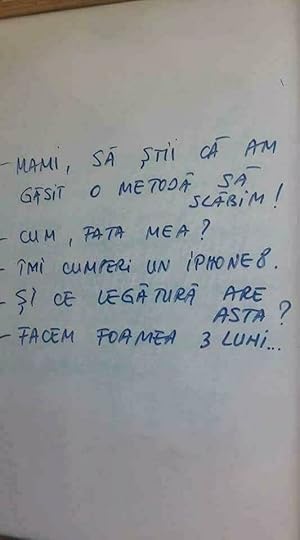 - MAMI, SĂ ȘTII CĂ AM
GĂSIT O METODĂ SĂ
SLĂBIM!
- CUM, FATA MEA?
- ÎMI CUMPERI UN IPHONE8.
- ȘI CE LEGĂTURĂ ARE
ASTA?
- FACEM FOAMEA 3 LUNI...